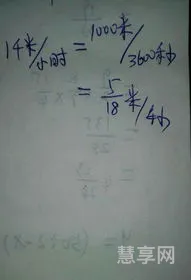 1千米/小时 = 1000米/3600秒
= 5/18 米/秒
慧享网